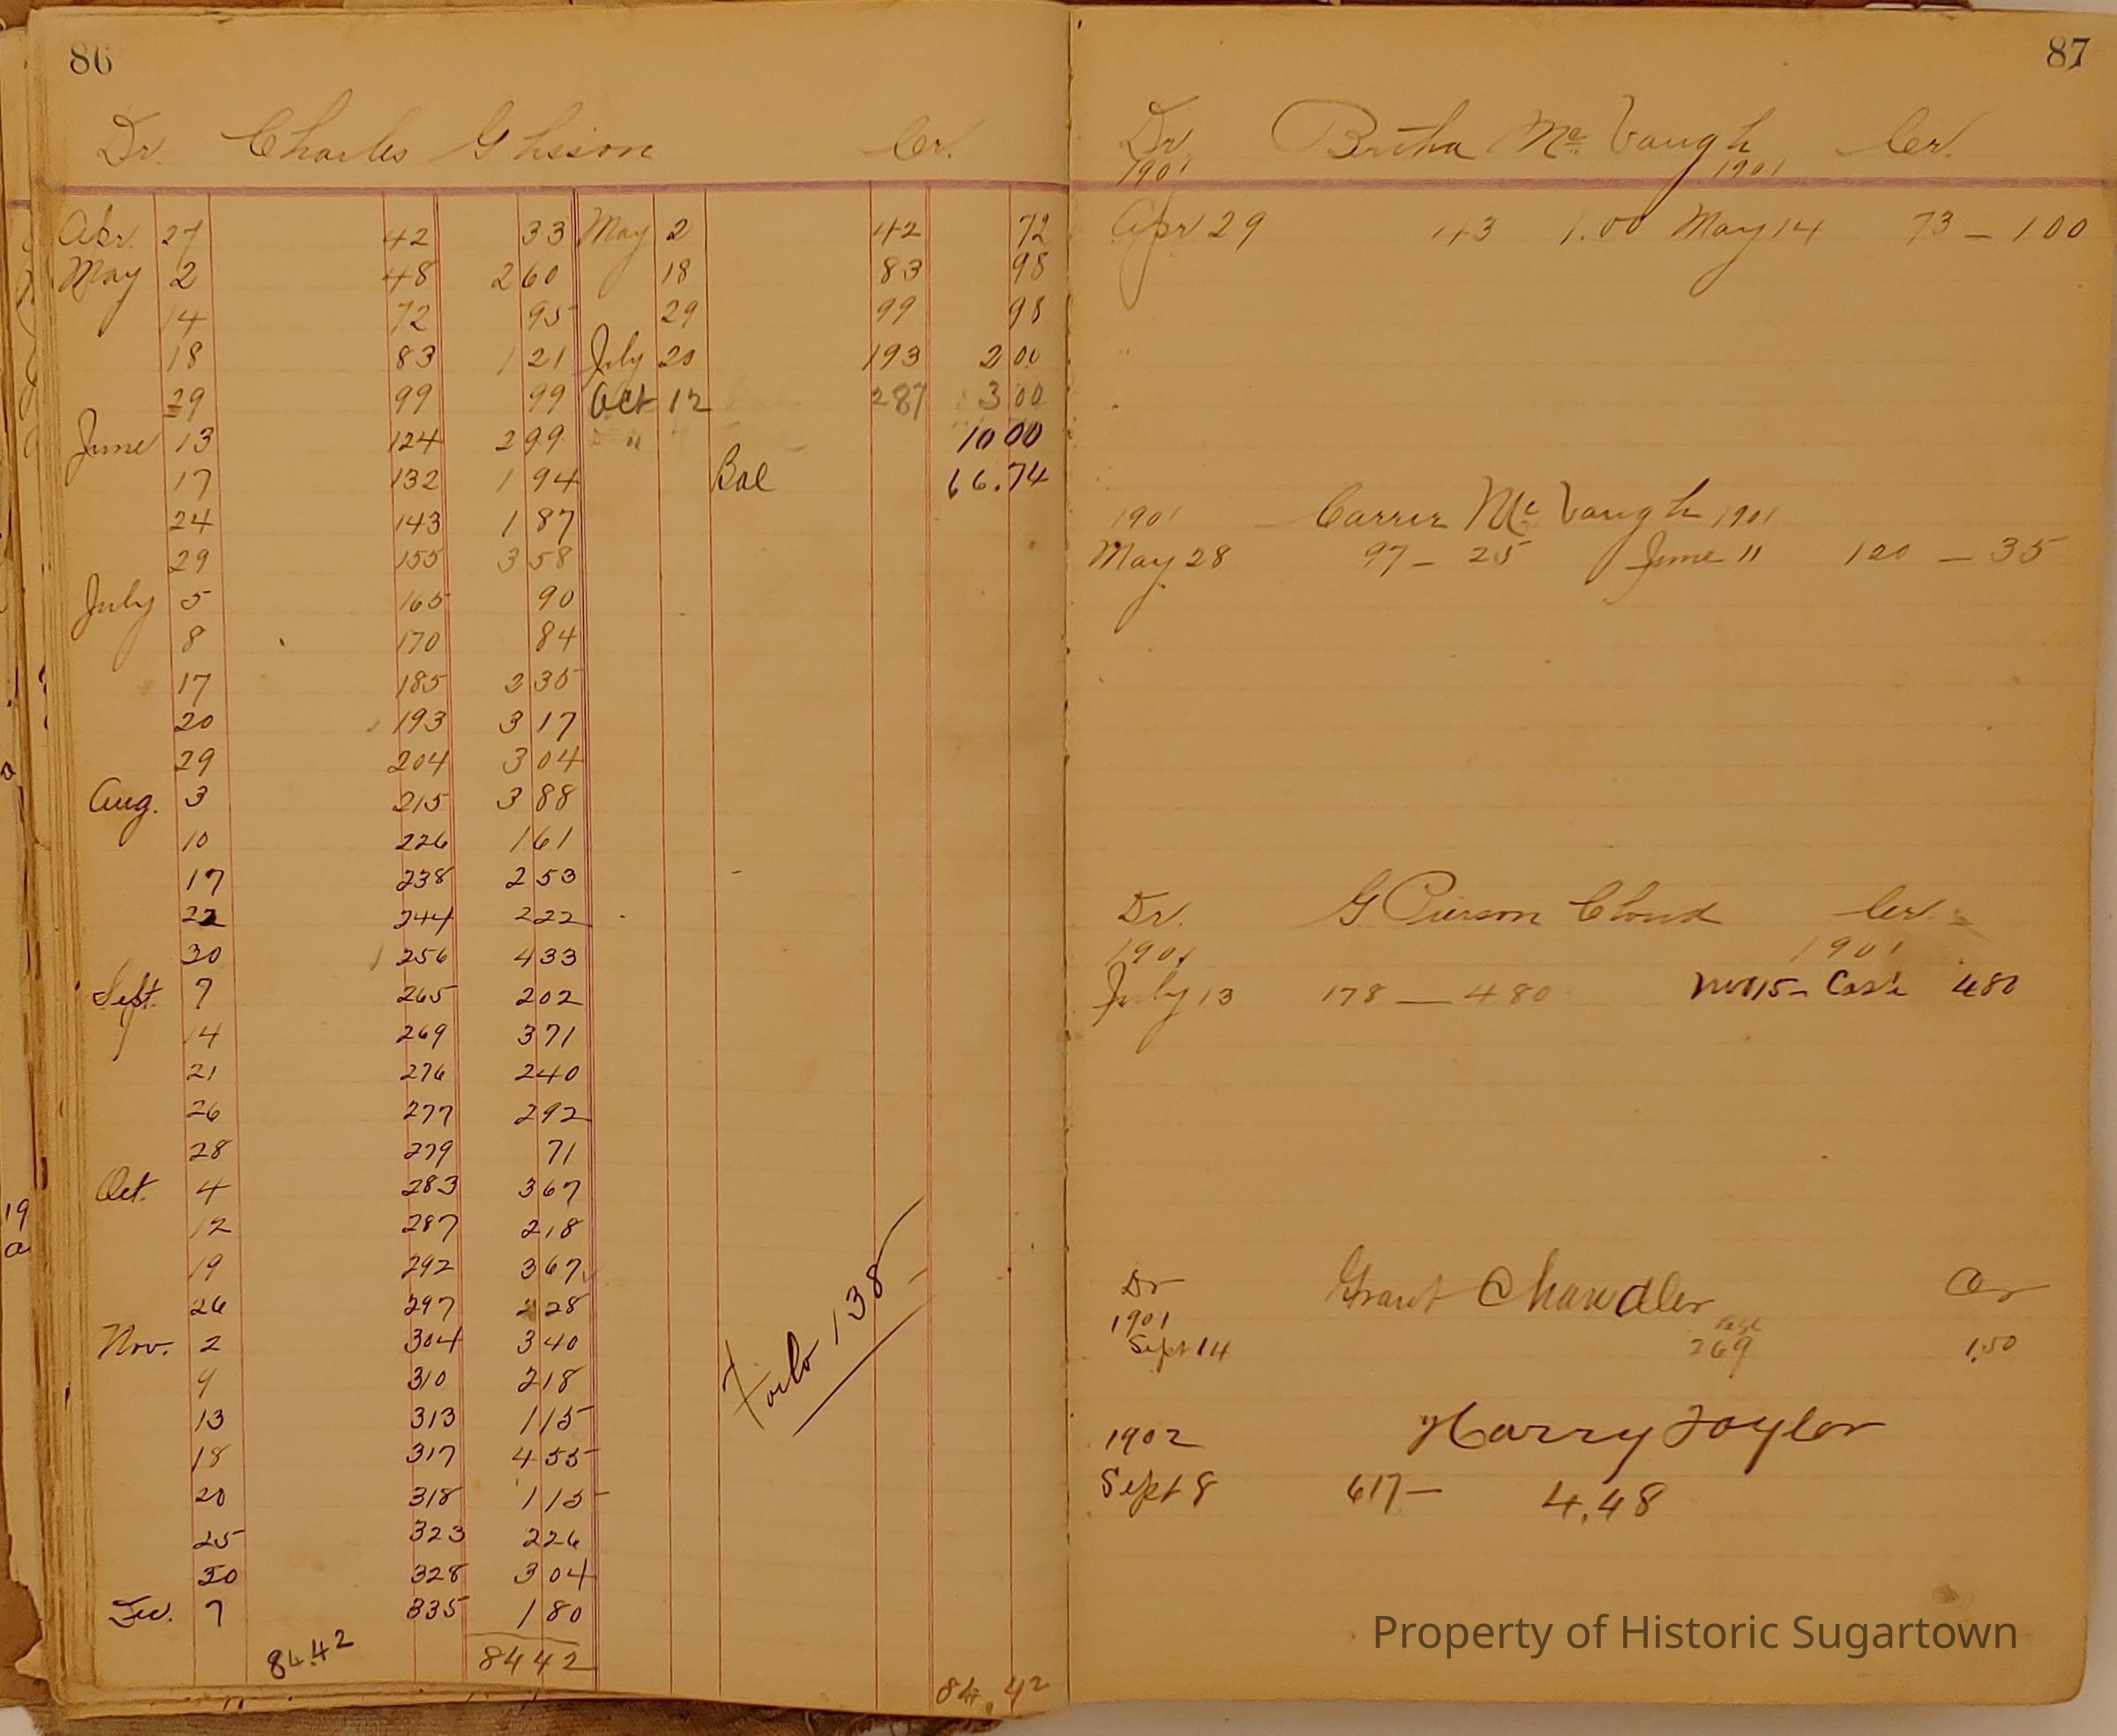 86
Dr. Charles Ghsion Cr.
Apr. 27 42 33 May 2 42 72
May 2 48 2 60 18 83 98
14 72 95 29 99 98
18 83 1 21 July 20 193 2 00
29 99 99 Oct 12 287 3 00
June 13 124 2 99 " 10 00
17 132 1 94 Bal 66.74
24 143 1 87
29 155 3 58
July 5 165 90
8 170 84
17 185 2 35
20 193 3 17
29 204 3 04
Aug. 3 215 3 88
10 226 1 61
17 238 2 53
22 244 2 22
30 256 4 33
Sept. 7 265 2 02
14 269 3 71
21 276 2 40
26 277 2 92
28 279 71
Oct. 4 283 3 67
12 287 2 18
19 292 3 67
26 297 2 28
Nov. 2 304 3 40
9 310 2 18
13 313 1 15
18 317 4 55
20 318 1 15
25 323 2 26
30 328 3 04
Dec. 7 335 1 80
84.42 84 42 84.42
Foilo 138
87
Dr. Bertha Mc Vaugh Cr.
1901 1901
Apr 29 43 1.00 May 14 73 — 1 00
1901 Carrie Mc Vaugh 1901
May 28 97 – 25 June 11 120 — 35
Dr. G Pierson Cloud Cr.
1901 1901
July 13 178 — 4 80 Nov 15 – Cash 4 80
Dr Grant Chandler Cr
1901 Page
Sept 14 269 1.50
1902 Harry Taylor
Sept 8 617 — 4.48
Property of Historic Sugartown